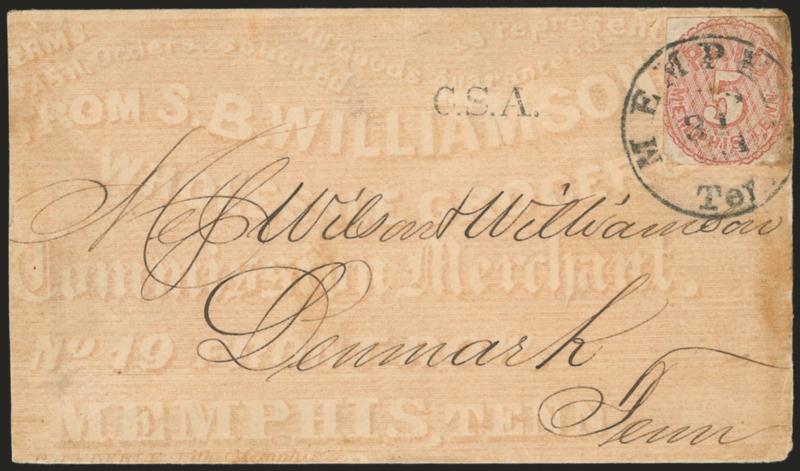 TERMS
CASH. Orders, solicited
All Goods guaranteed as represented
FROM S.B. WILLIAMSON
WHOLESALE GROCER
Commission Merchant.
No 19
MEMPHIS, TENN
Lith. Memphis
C.S.A.
MEMPHIS
Ten
5
MEMPHIS, TEN
Wilson & Williamson
Denmark
Tenn